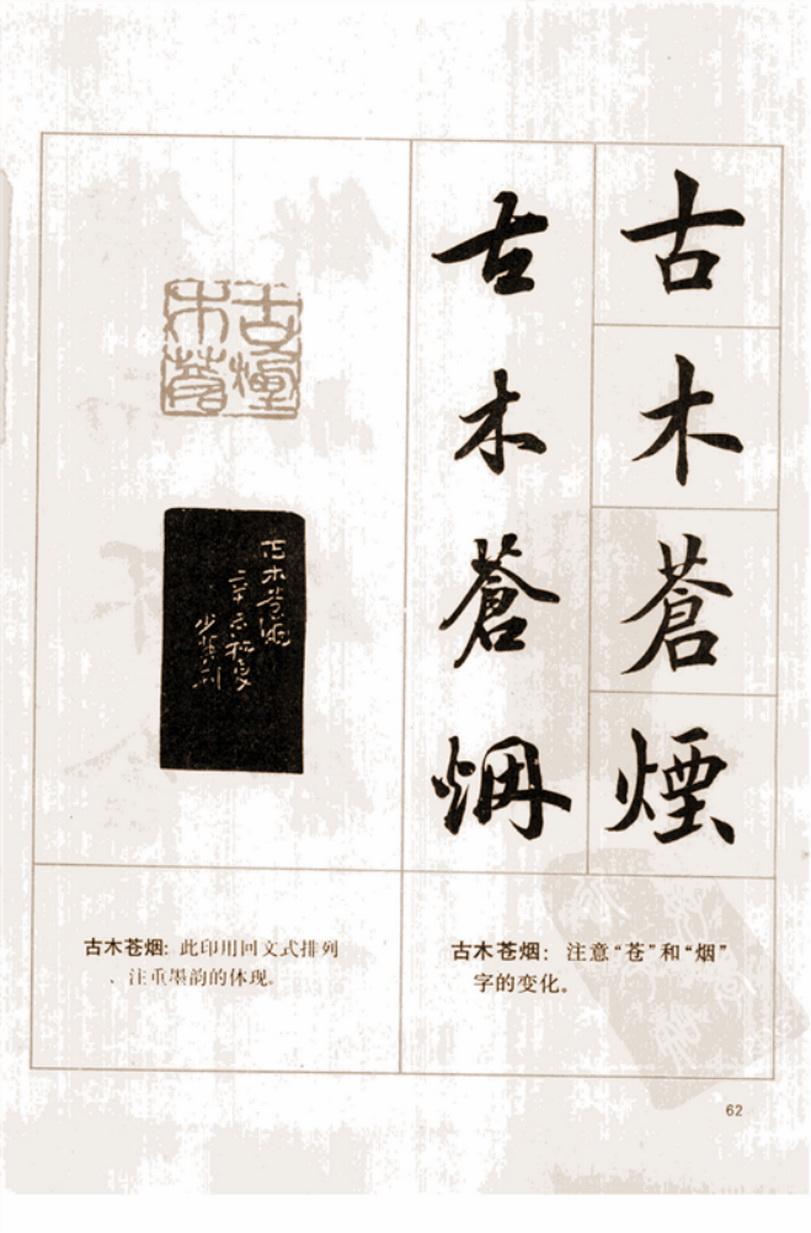 古木蒼煙
古木蒼烟
古煙
木蒼
古木苍烟
辛未
古木苍烟：注意“苍”和“烟”
字的变化。
古木苍烟：此印用回文式排列
、注重墨韵的体现。
62